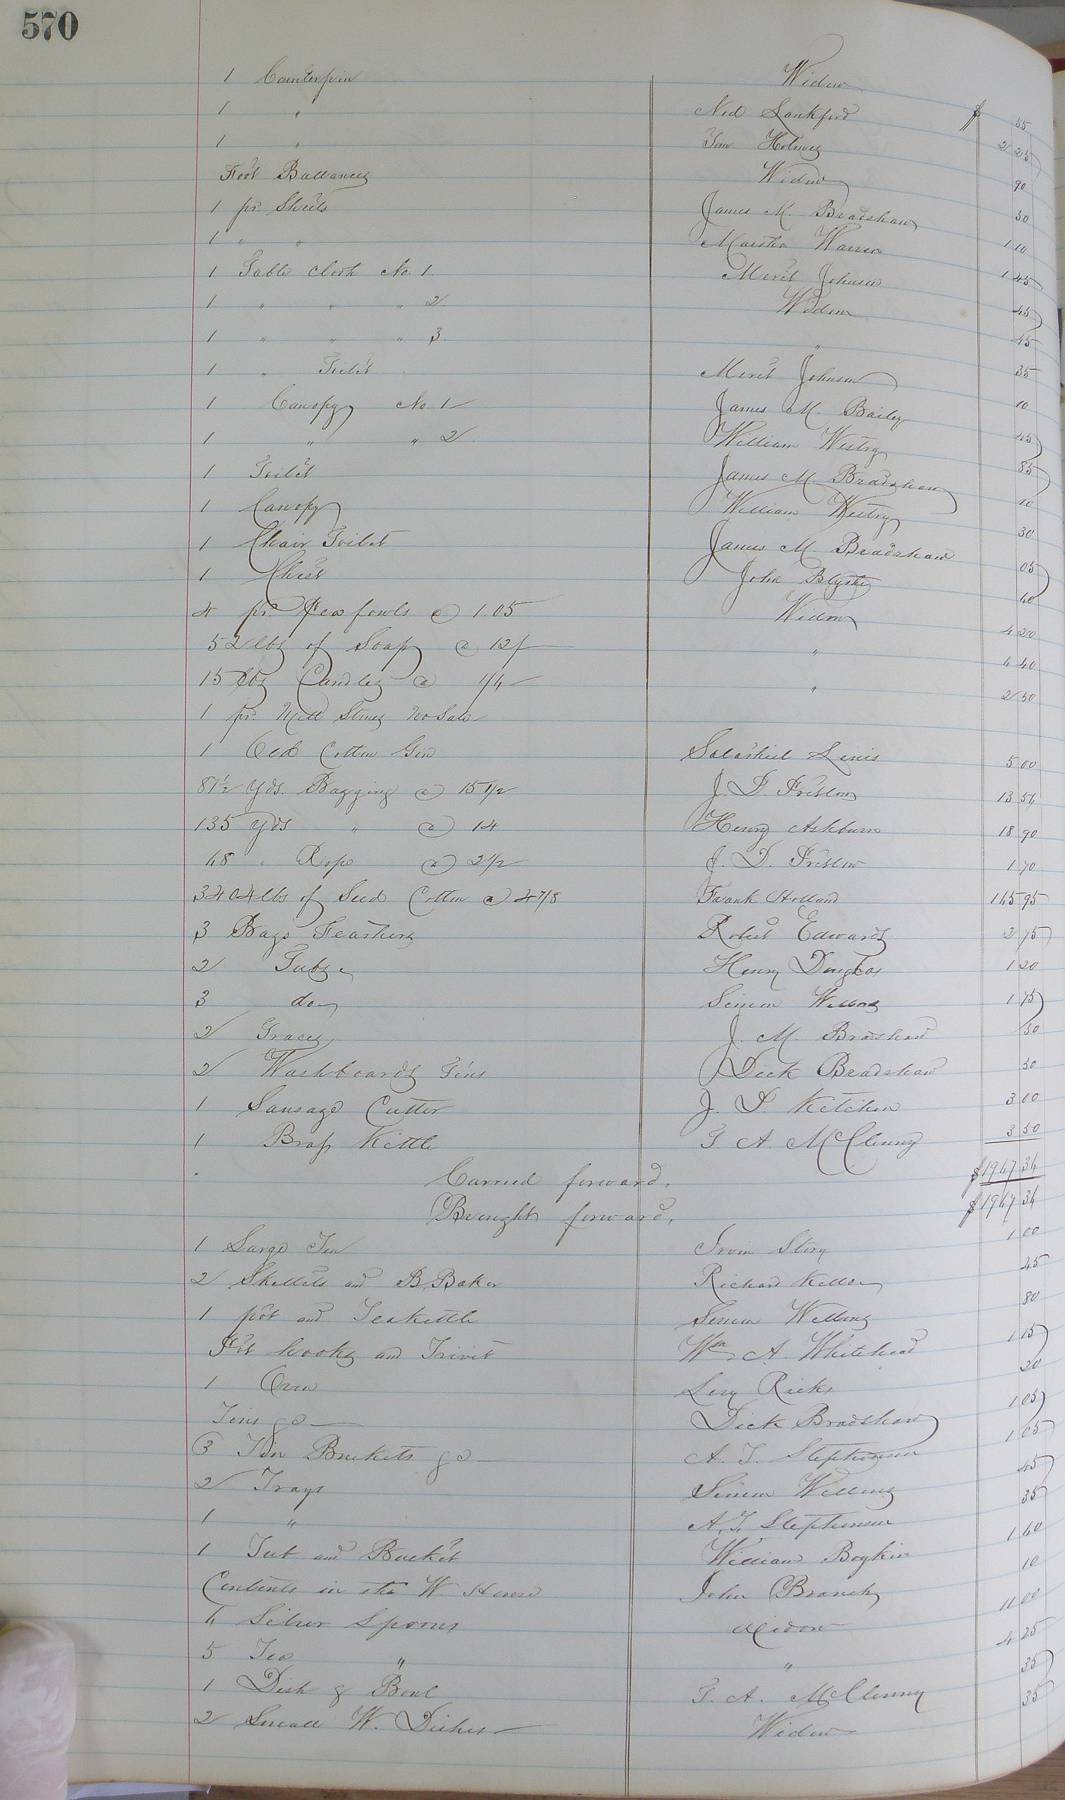 570
1 Counterpin Widow $ 55
1 " Ned Lankford 2 25
1 " Tom Holmes 90
Foot Ballances Widow 50
1 pr Sheets James M. Bradshaw 1 10
1 " " Martha Warren 1 45
1 Table cloth No. 1. Meret Johnson 45
1 " " " 2 Widow 45
1 " " " 3 " 35
1 " Toilet Meret Johnson 10
1 Canopy No. 1 James M. Bailey 45
1 " " 2 William Westry 85
1 Toilet James M. Bradshaw 10
1 Canopy William Westry 30
1 Chair Toilet James M. Bradshaw 05
1 Chest John Blythe 40
4 pr. Pea fowls @ 1.05 Widow 4 20
52 lbs of Soap @ 12/ " 6 40
15 lbs Candles @ 1/4 " 2 50
1 pr. Mill Stones No Sale
1 Old Cotton Gin Salathiel Lewis 5 00
87 1/2 Yds. Bagging @ 15 1/2 J. D. Pretlow 13 56
135 Yds " @ 14 Henry Ashburn 18 90
68 " Rope @ 2 1/2 J. D. Pretlow 1 70
3404 lbs of Seed Cotton @ 4 7/8 Frank Holland 165 95
3 Bags Feathers Robert Edwards 2 75
2 Tubs Henry Douglas 1 20
3 do Simon 1 75
2 Traces J. M. Bradshaw 50
2 Washboards Tins Dick Bradshaw 50
1 Sausage Cutter J. D. Kitchen 3 00
1 Brass Kettle T. A. McClenny 3 50
Carried forward, $1947 34
Brought forward, $1947 34
1 Large Tin Story 1 00
2 Skillets and B. Baker Richard 45
1 pot and Teakettle Simon 80
Pot hooks and Trivet Wm A. Whitehead 1 15
1 Oven Levy Ricks 20
Tins &c Dick Bradshaw 1 05
3 Tin Buckets &c A. T. Stephenson 1 05
2 Trays Simon 45
1 " A. T. Stephenson 35
1 Tub and Bucket William Boykin 1 60
Contents in the W House John Branch 10
4 Silver Spoons Widow 11 00
5 Tea " " 4 25
1 Dish & Bowl T. A. McClenny 35
2 Small W. Dishes Widow 35